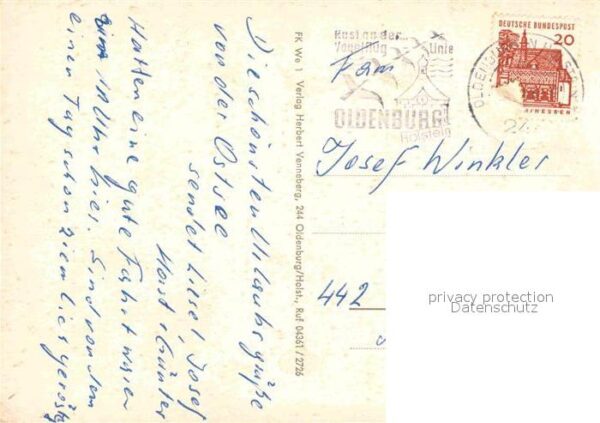 Die schönsten Urlaubsgrüße
von der Ostsee
sendet Lissel, Josef
Horst + Günter
Hatten eine gute Fahrt waren
um 11 Uhr hier. Sind von dem
einen Tag schon ziemlich geröstet
FK We 1 Verlag Herbert Venneberg, 244 Oldenburg/Holst., Ruf 04361 / 2726
Rast an der
Vogelflug Linie
OLDENBURG
Holstein
DEUTSCHE BUNDESPOST
20
Fam
Josef Winkler
442
privacy protection
Datenschutz